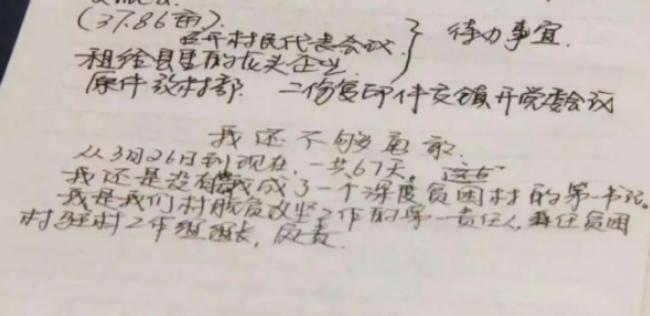 (37.86亩).
召开村民代表会议 } 待办事宜.
租给县里的龙头企业
原件放村部. 二份复印件交镇开党委会议
我还不够勇敢.
从3月26日到现在,一共67天。这67
我还是没有 我成了一个深度贫困村的第一书记。
我是我们村脱贫攻坚工作的第一责任人,兼任贫困
村驻村工作组组长, 负责